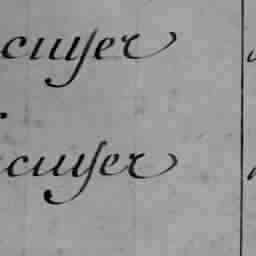 cuyer
cuyer